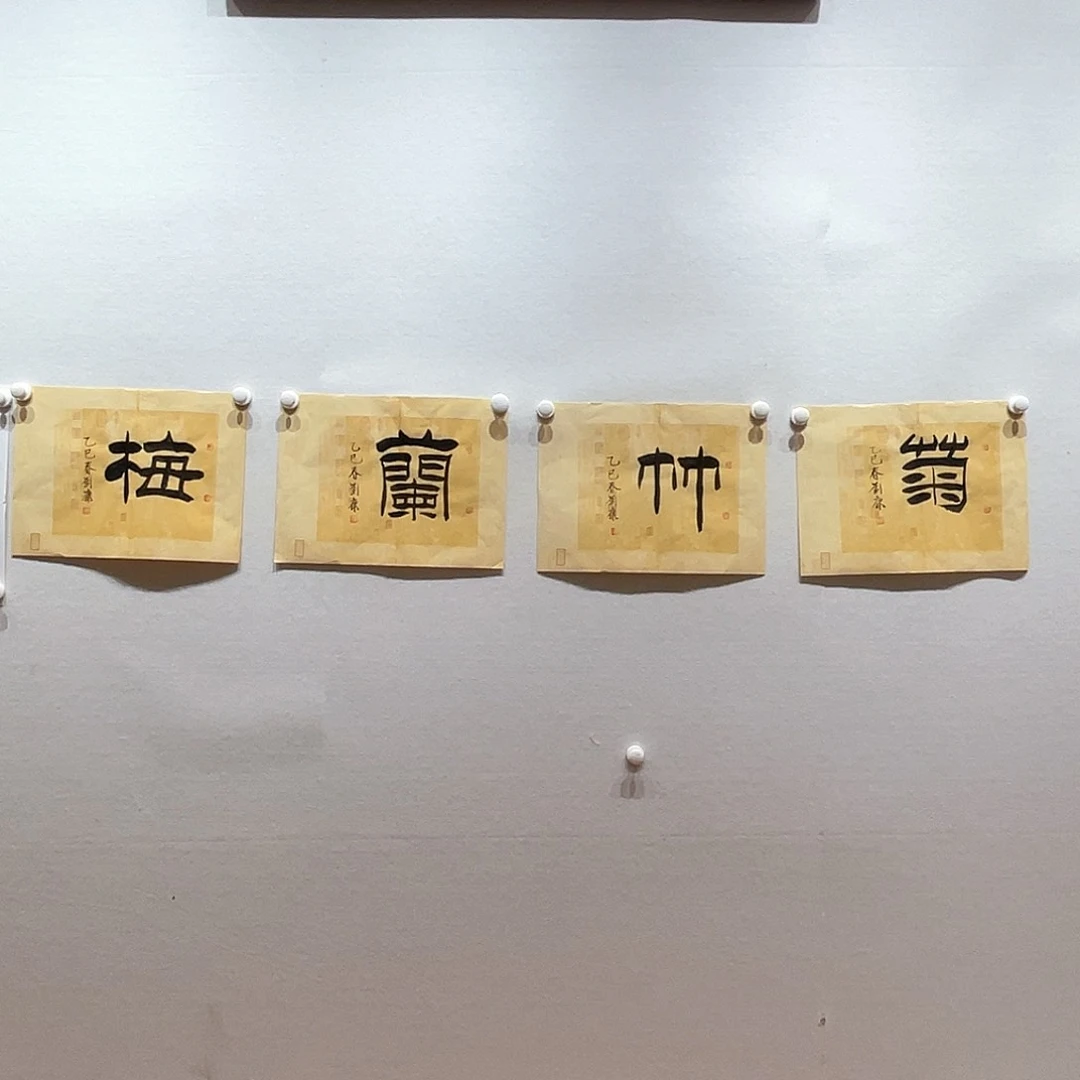 梅
乙巳春劉
蘭
乙巳春劉
竹
乙巳春劉
菊
乙巳春劉